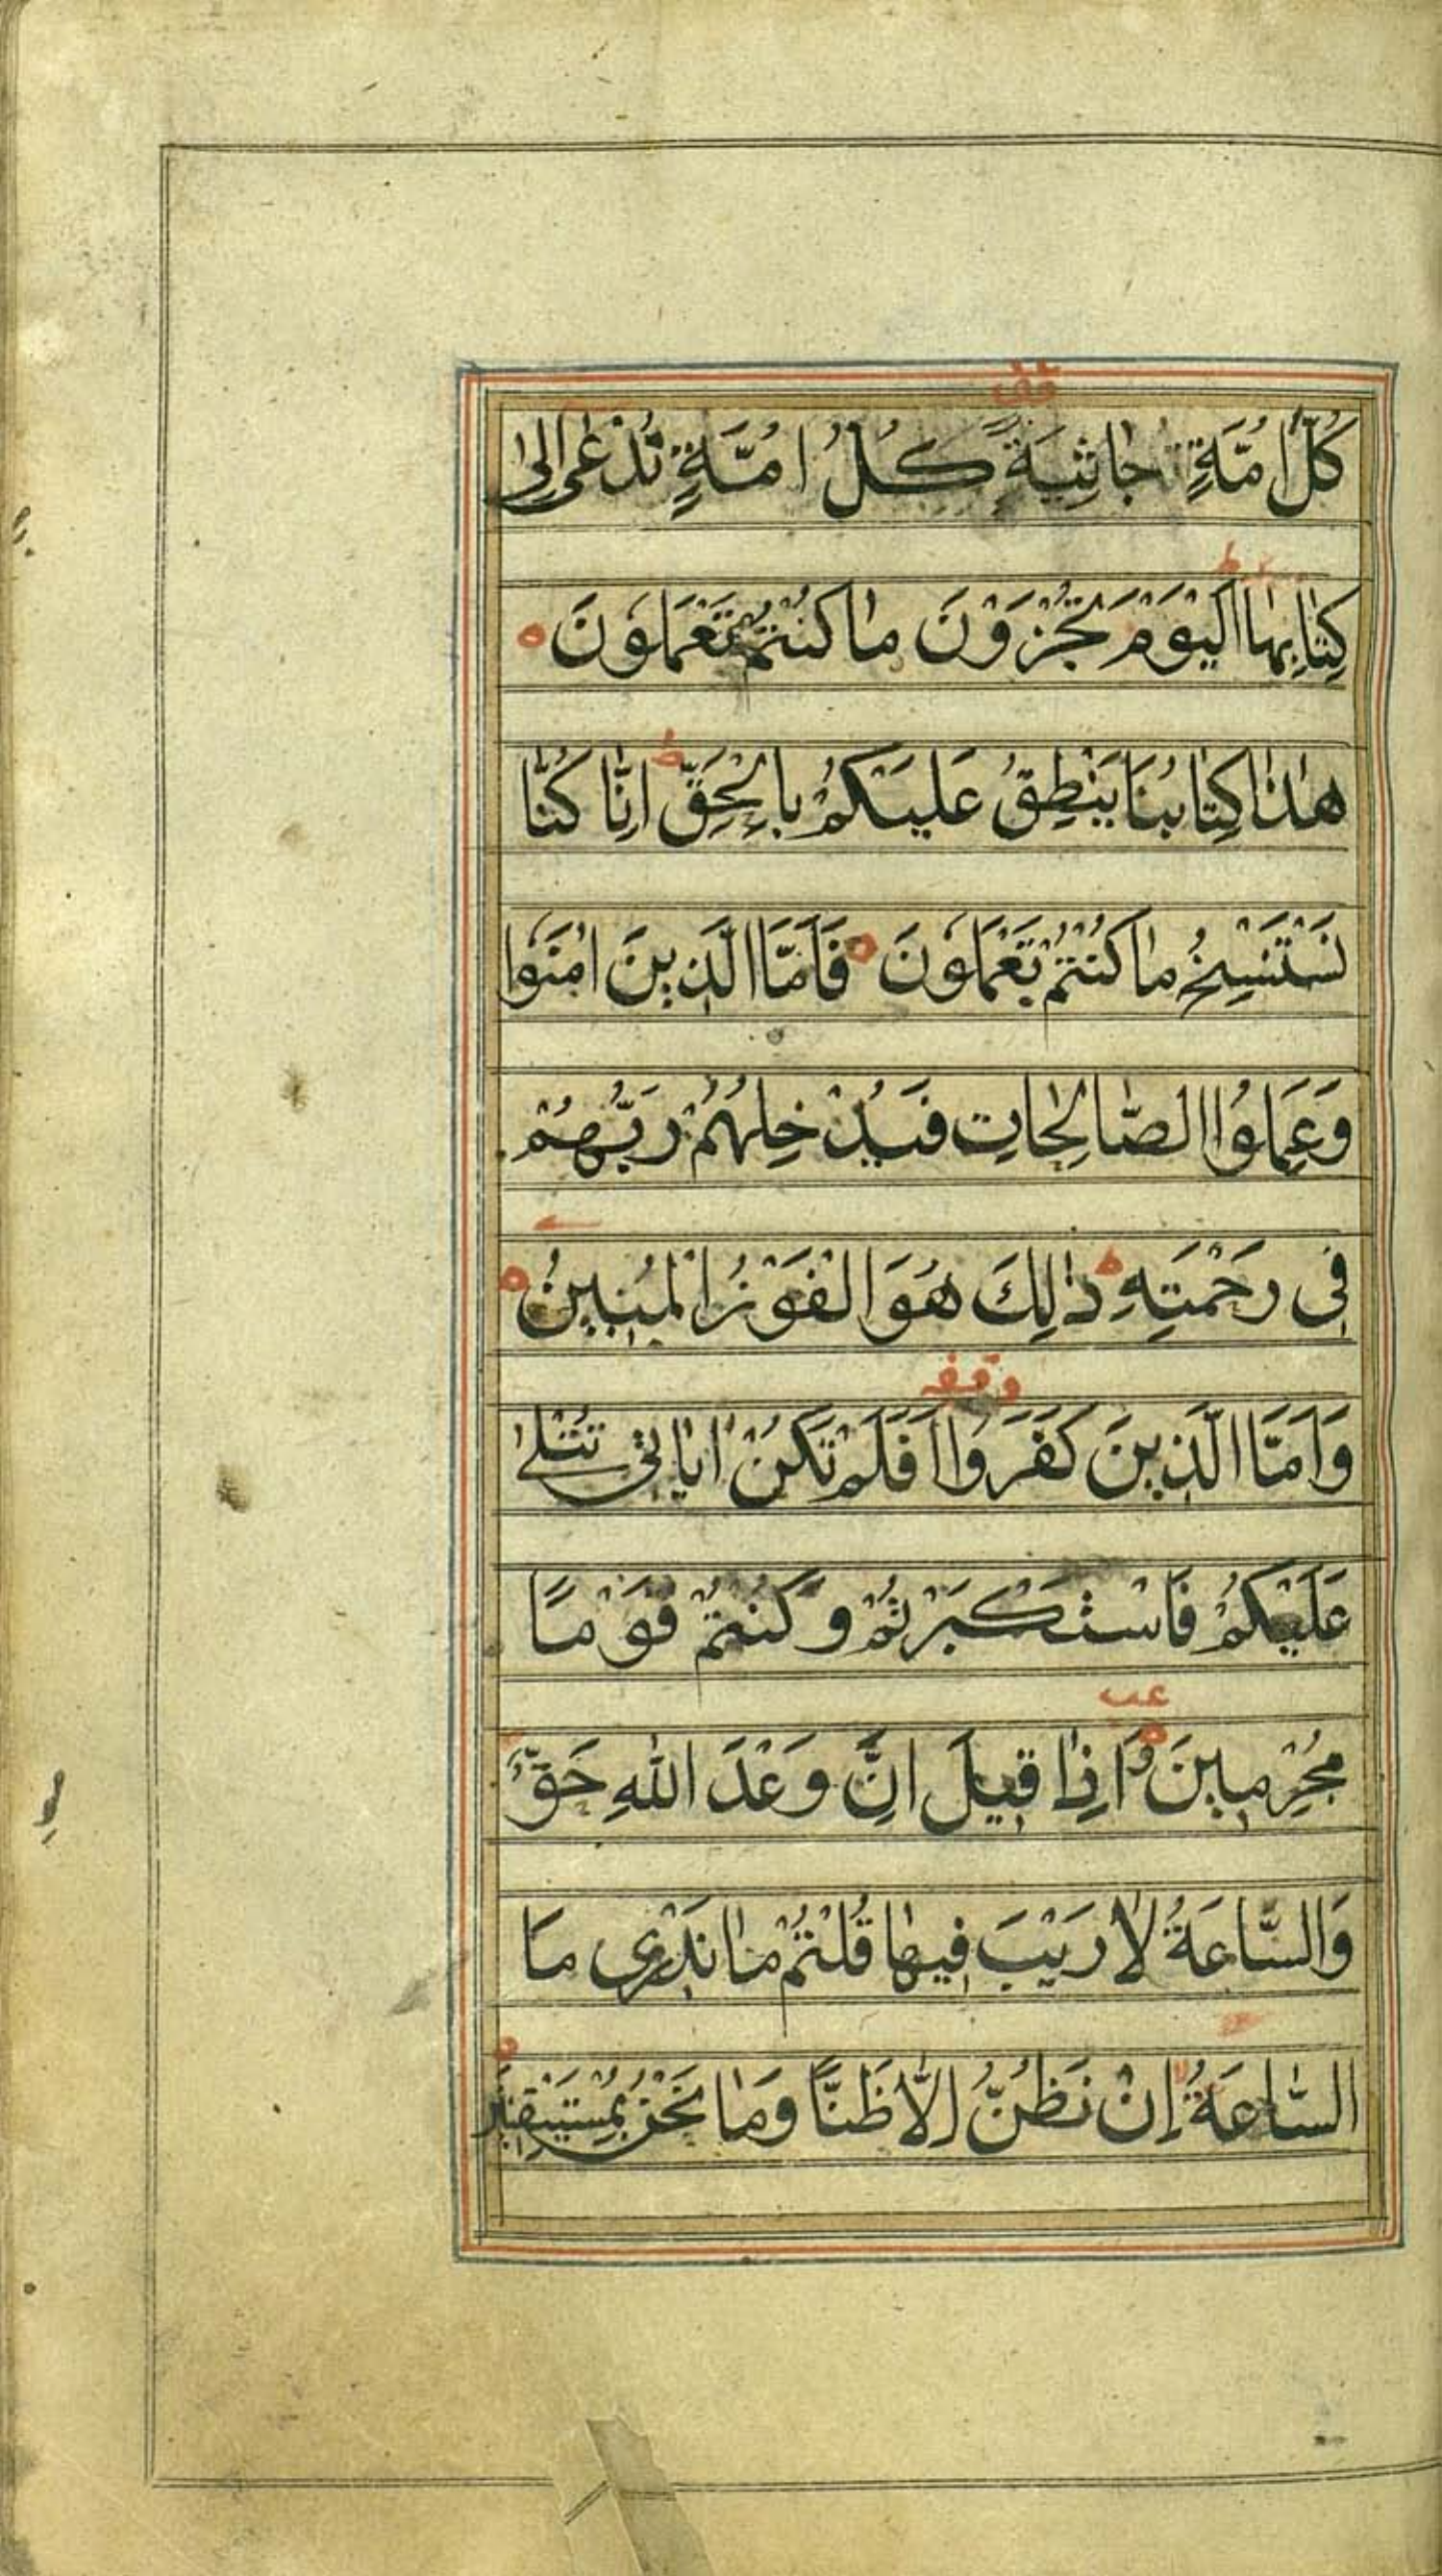 كُلَّ اُمَّةٍ جاثِيَةً كُلُّ اُمَّةٍ تُدْعٰى اِلٰى
كِتٰابِهٰا اَلْيَوْمَ تُجْزَوْنَ مٰا كُنْتُمْ تَعْمَلُونَ
هٰذٰا كِتٰابُنٰا يَنْطِقُ عَلَيْكُمْ بِالْحَقِّ اِنّٰا كُنّٰا
نَسْتَنْسِخُ مٰا كُنْتُمْ تَعْمَلُونَ فَاَمَّا الَّذينَ اٰمَنُوا
وَعَمِلُوا الصّٰالِحٰاتِ فَيُدْخِلُهُمْ رَبُّهُمْ
فِى رَحْمَتِهِ ط ذٰلِكَ هُوَ الْفَوْزُ الْمُبينُ
وقفه
وَاَمَّا الَّذينَ كَفَرُوا اَفَلَمْ تَكُنْ اٰيٰاتى تُتْلٰى
عَلَيْكُمْ فَاسْتَكْبَرْتُمْ وَكُنْتُمْ قَوْمًا
عب
مُجْرِمينَ وَاِذٰا قيلَ اِنَّ وَعْدَ اللّٰهِ حَقٌّ
وَالسّٰاعَةُ لٰا رَيْبَ فيهٰا قُلْتُمْ مٰا نَدْرى مَا
السّٰاعَةُ اِنْ نَظُنُّ اِلّٰا ظَنًّا وَمٰا نَحْنُ بِمُسْتَيْقِنينَ